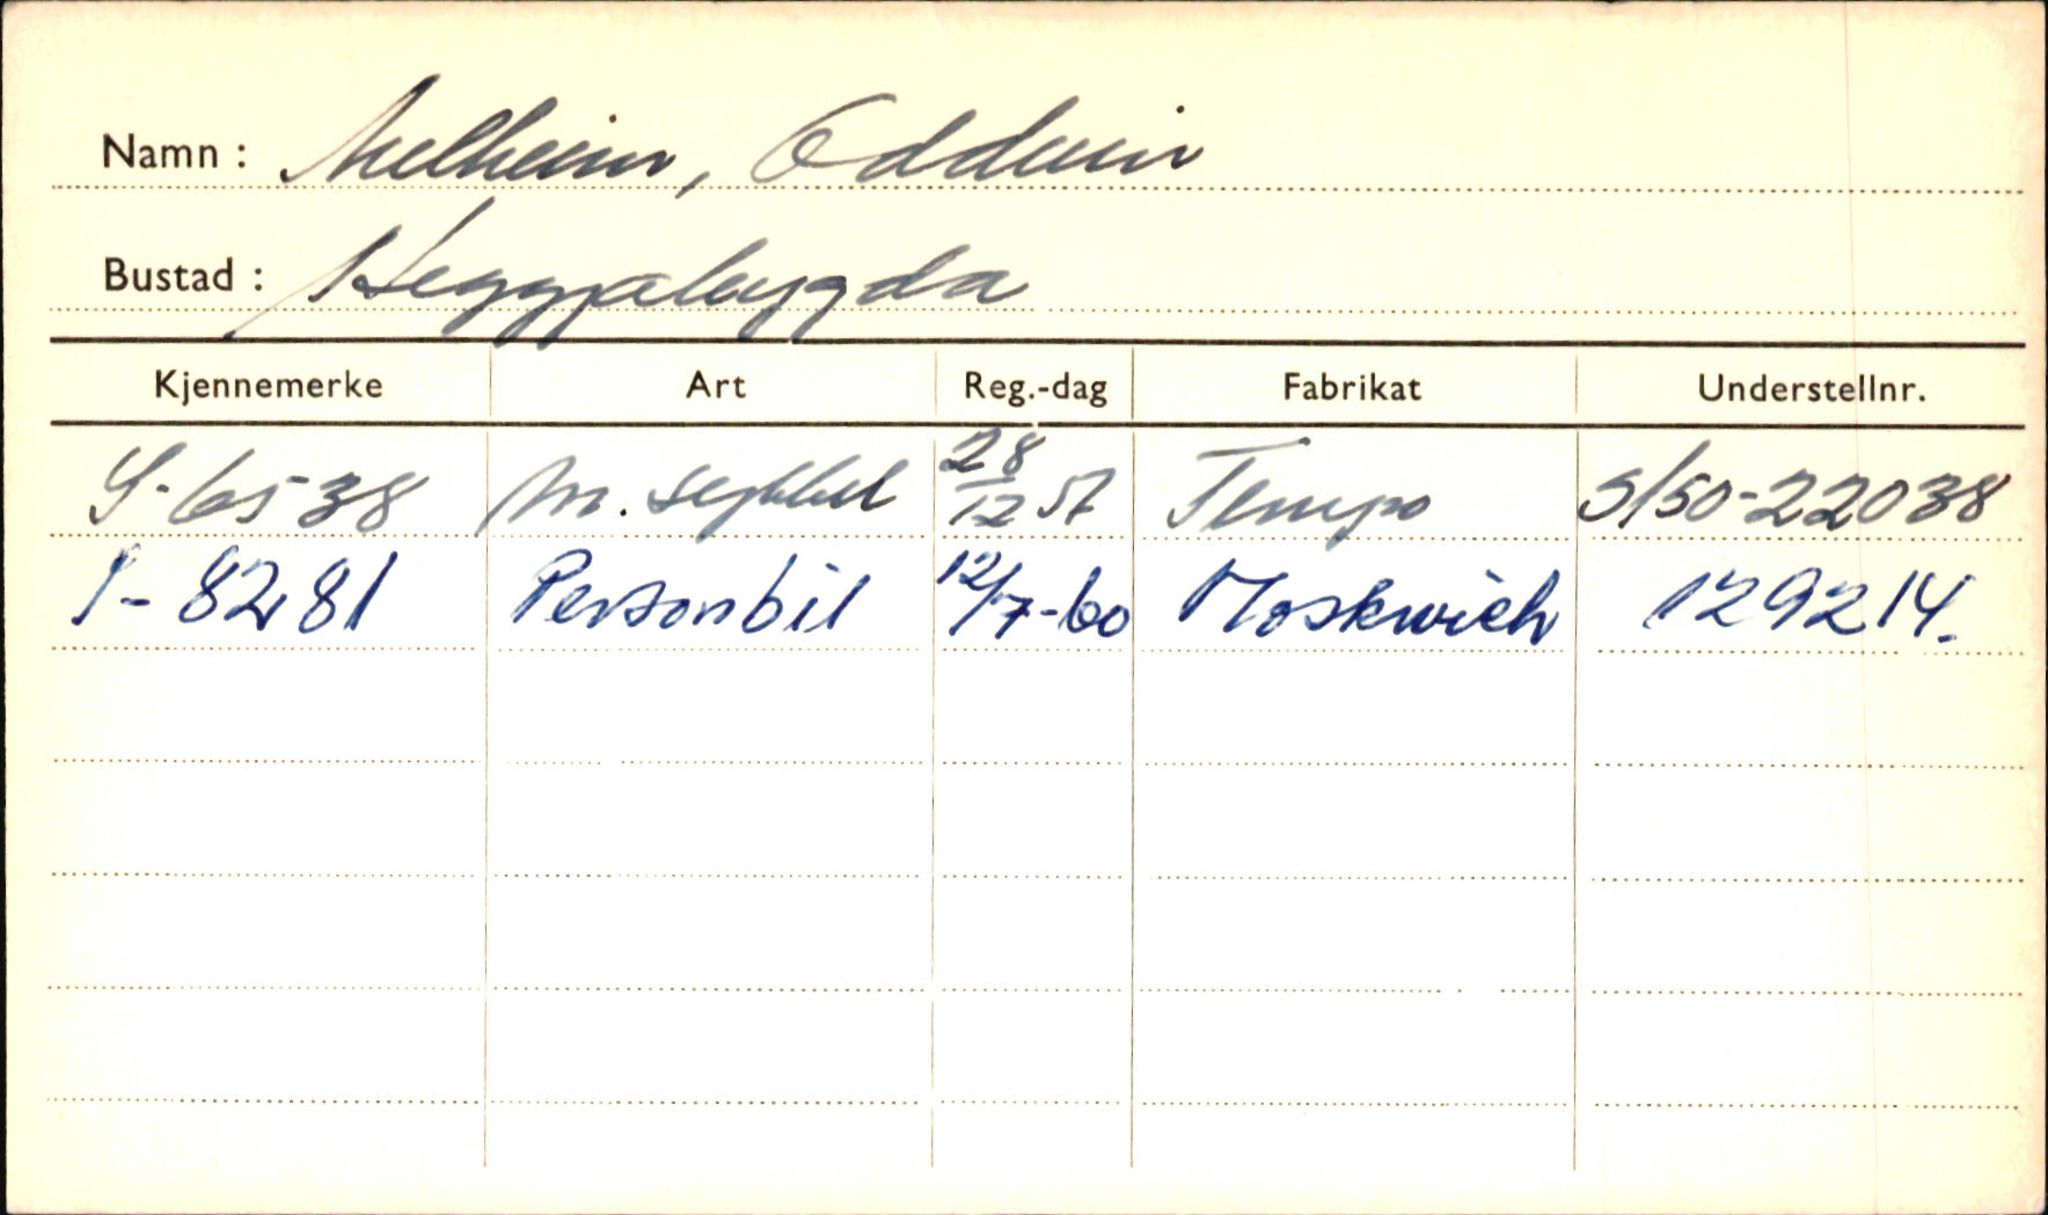 Namn: Melheim, Odduin
Bustad: Heggjabygda
Kjennemerke Art Reg.-dag Fabrikat Understellnr.
S-6538 M. sykkel 28/12 57 Tempo S/50-22038
S-8281 Personbil 12/7-60 Moskwich 129214.